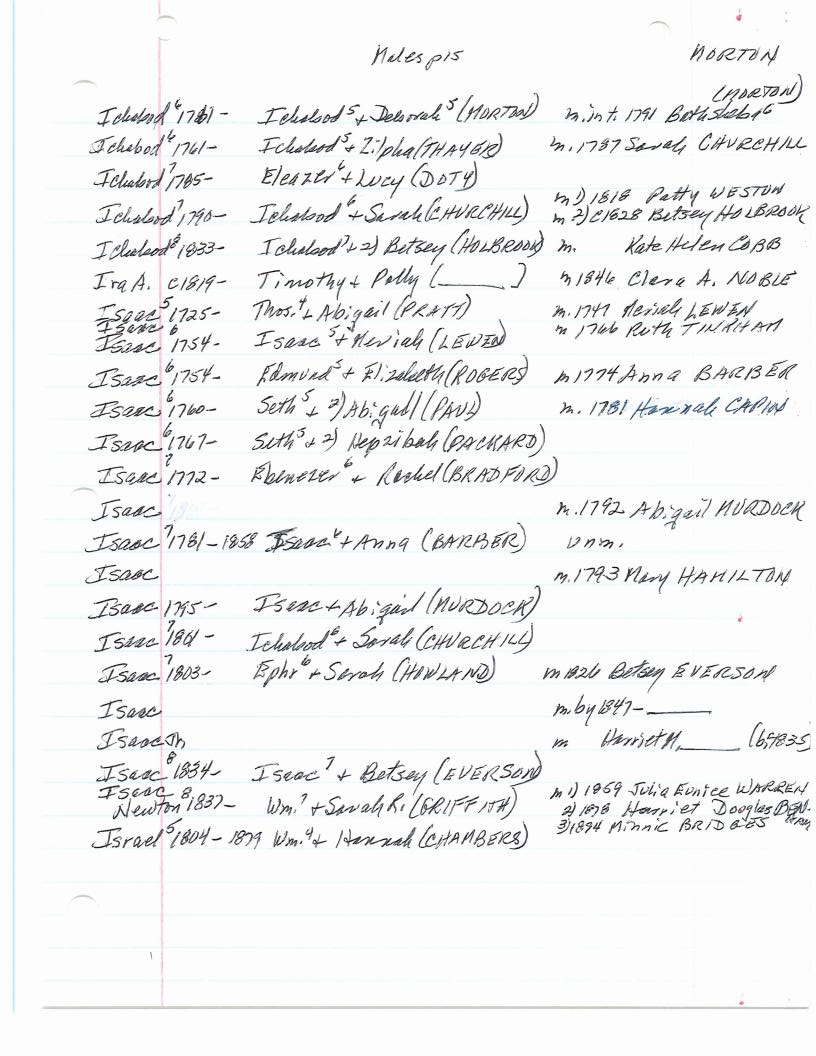 Males p15 MORTON
(MORTON)
Ichabod⁶ 1761- Ichabod⁵ + Deborah⁵ (MORTON) m.int. 1791 Bathsheba⁶
Ichabod⁶ 1761- Ichabod⁵ + Zilpha (THAYER) m. 1787 Sarah CHURCHILL
Ichabod⁷ 1785- Eleazer⁶ + Lucy (DOTY)
m 1) 1818 Patty WESTON
Ichabod⁷ 1790- Ichabod⁶ + Sarah (CHURCHILL) m 2) c1828 Betsey HOLBROOK
Ichabod⁸ 1833- Ichabod⁷ + 2) Betsey (HOLBROOK) m. Kate Helen COBB
Ira A. c1819- Timothy + Polly (______) m 1846 Clara A. NOBLE
Isaac⁵ 1725- Thos.⁴ + Abigail (PRATT) m. 1747 Meriah LEWEN
Isaac⁶ m 1766 Ruth TINKHAM
Isaac 1754- Isaac⁵ + Meriah (LEWEN)
Isaac⁶ 1754- Edmund⁵ + Elizabeth (ROGERS) m 1774 Anna BARBER
Isaac⁶ 1760- Seth⁵ + 2) Abigail (PAUL) m. 1781 Hannah
Isaac⁶ 1767- Seth⁵ + 2) Hepzibah (PACKARD)
Isaac⁷ 1772- Ebenezer⁶ + Rachel (BRADFORD)
Isaac m. 1792 Abigail MURDOCK
Isaac⁷ 1781-1858 Isaac⁶ + Anna (BARBER) unm.
Isaac m. 1793 Mary HAMILTON
Isaac 1795- Isaac + Abigail (MURDOCK)
Isaac⁷ 1801- Ichabod⁶ + Sarah (CHURCHILL)
Isaac⁷ 1803- Ephr⁶ + Sarah (HOWLAND) m 1826 Betsey EVERSON
Isaac m. by 1847- ______
Isaac m Harriet M. ______ (b. 1835)
Isaac⁸ 1834- Isaac⁷ + Betsey (EVERSON)
Isaac⁸ m 1) 1859 Julia Eunice WARREN
Newton 1837- Wm.⁷ + Sarah R. (GRIFFITH) 2) 1878 Harriet Douglas BEN-
3) 1894 Minnie BRIDGES HAM
Israel⁵ 1804-1879 Wm.⁴ + Hannah (CHAMBERS)